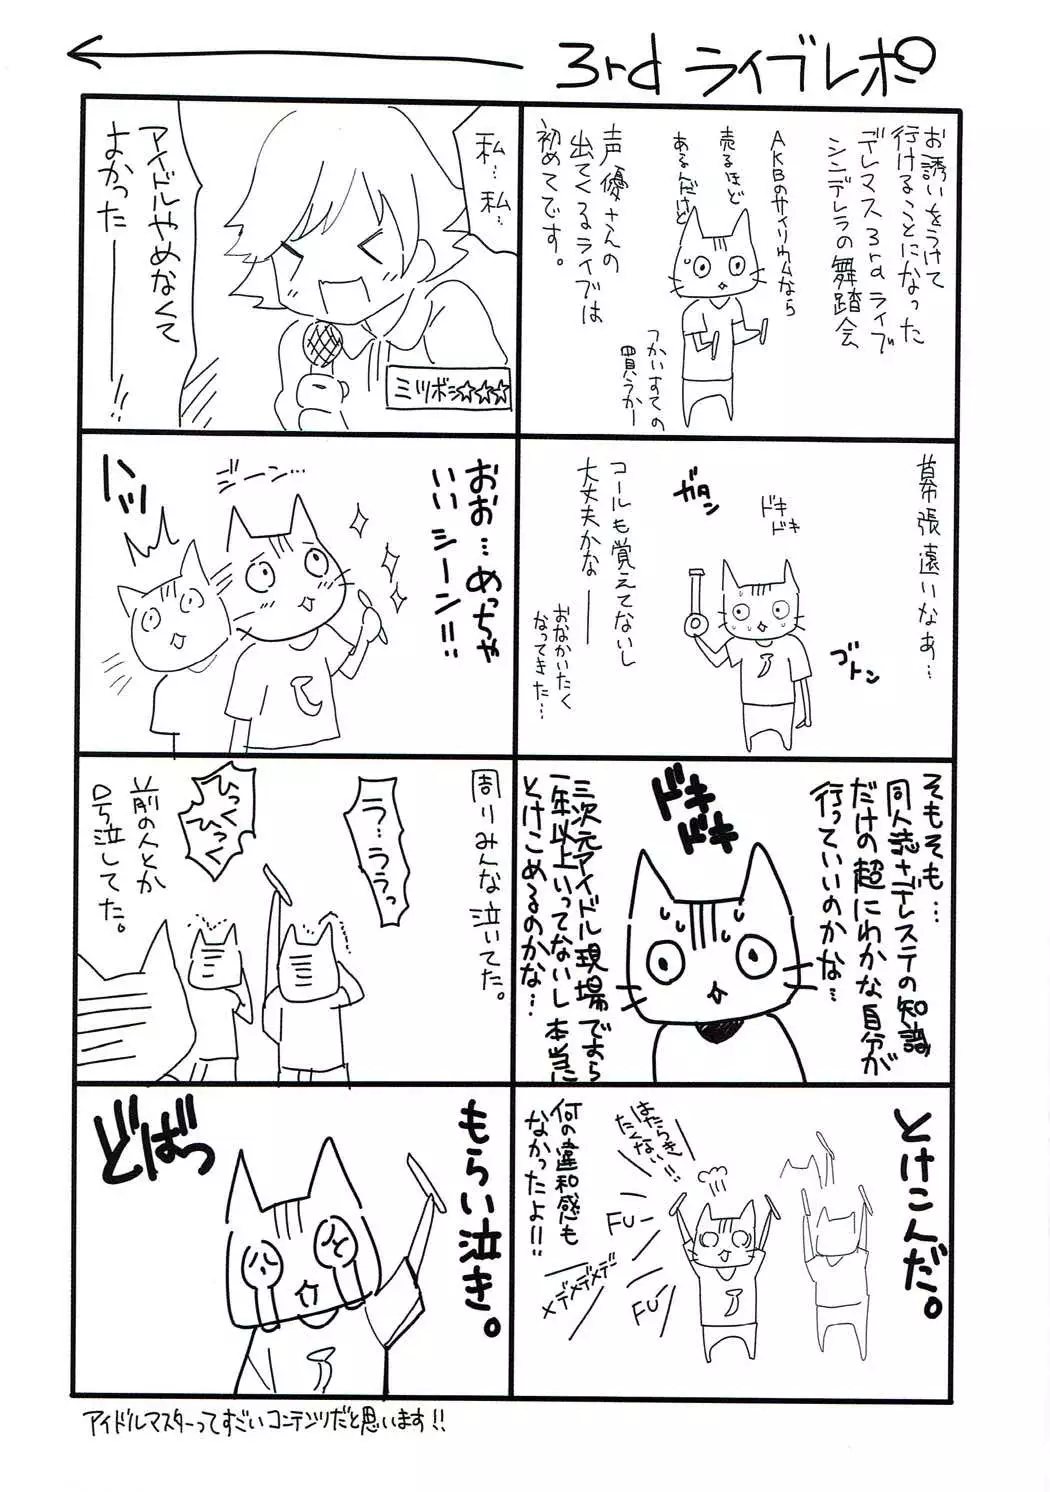 3rd ライブレポ
お誘いをうけて
行けることになった
デレマス3rdライブ
シンデレラの舞踏会
AKBのサイリウムなら
売るほど
あるんだけど
声優さんの
出てくるライブは
初めてです。
つかいすての
買うかー
幕張遠いなぁ…
ドキ
ドキ
ガタン
ゴトン
コールも覚えてないし
大丈夫かな
おなかいたく
なってきた…
そもそも…
同人誌+デレステの知識
だけの超にわかな自分が
行っていいのかな…
ドキ
ドキ
三次元アイドル現場ですら
一年以上いってないし本当に
とけこめるのかな…
とけこんだ。
はたらき
たくない!!
FU-
FU-
メデメデメデ
何の違和感も
なかったよ!!
私…私…
アイドルやめなくて
よかったーー!!
ミツボシ☆☆☆
おお…めっちゃ
いいシーン!!
ジーン…
ハッ
周りみんな泣いてた。
う…ううっ
ひっく
ひっく
前の人とか
号泣してた。
もらい泣き。
どばっ
アイドルマスターってすごいコンテンツだと思います!!